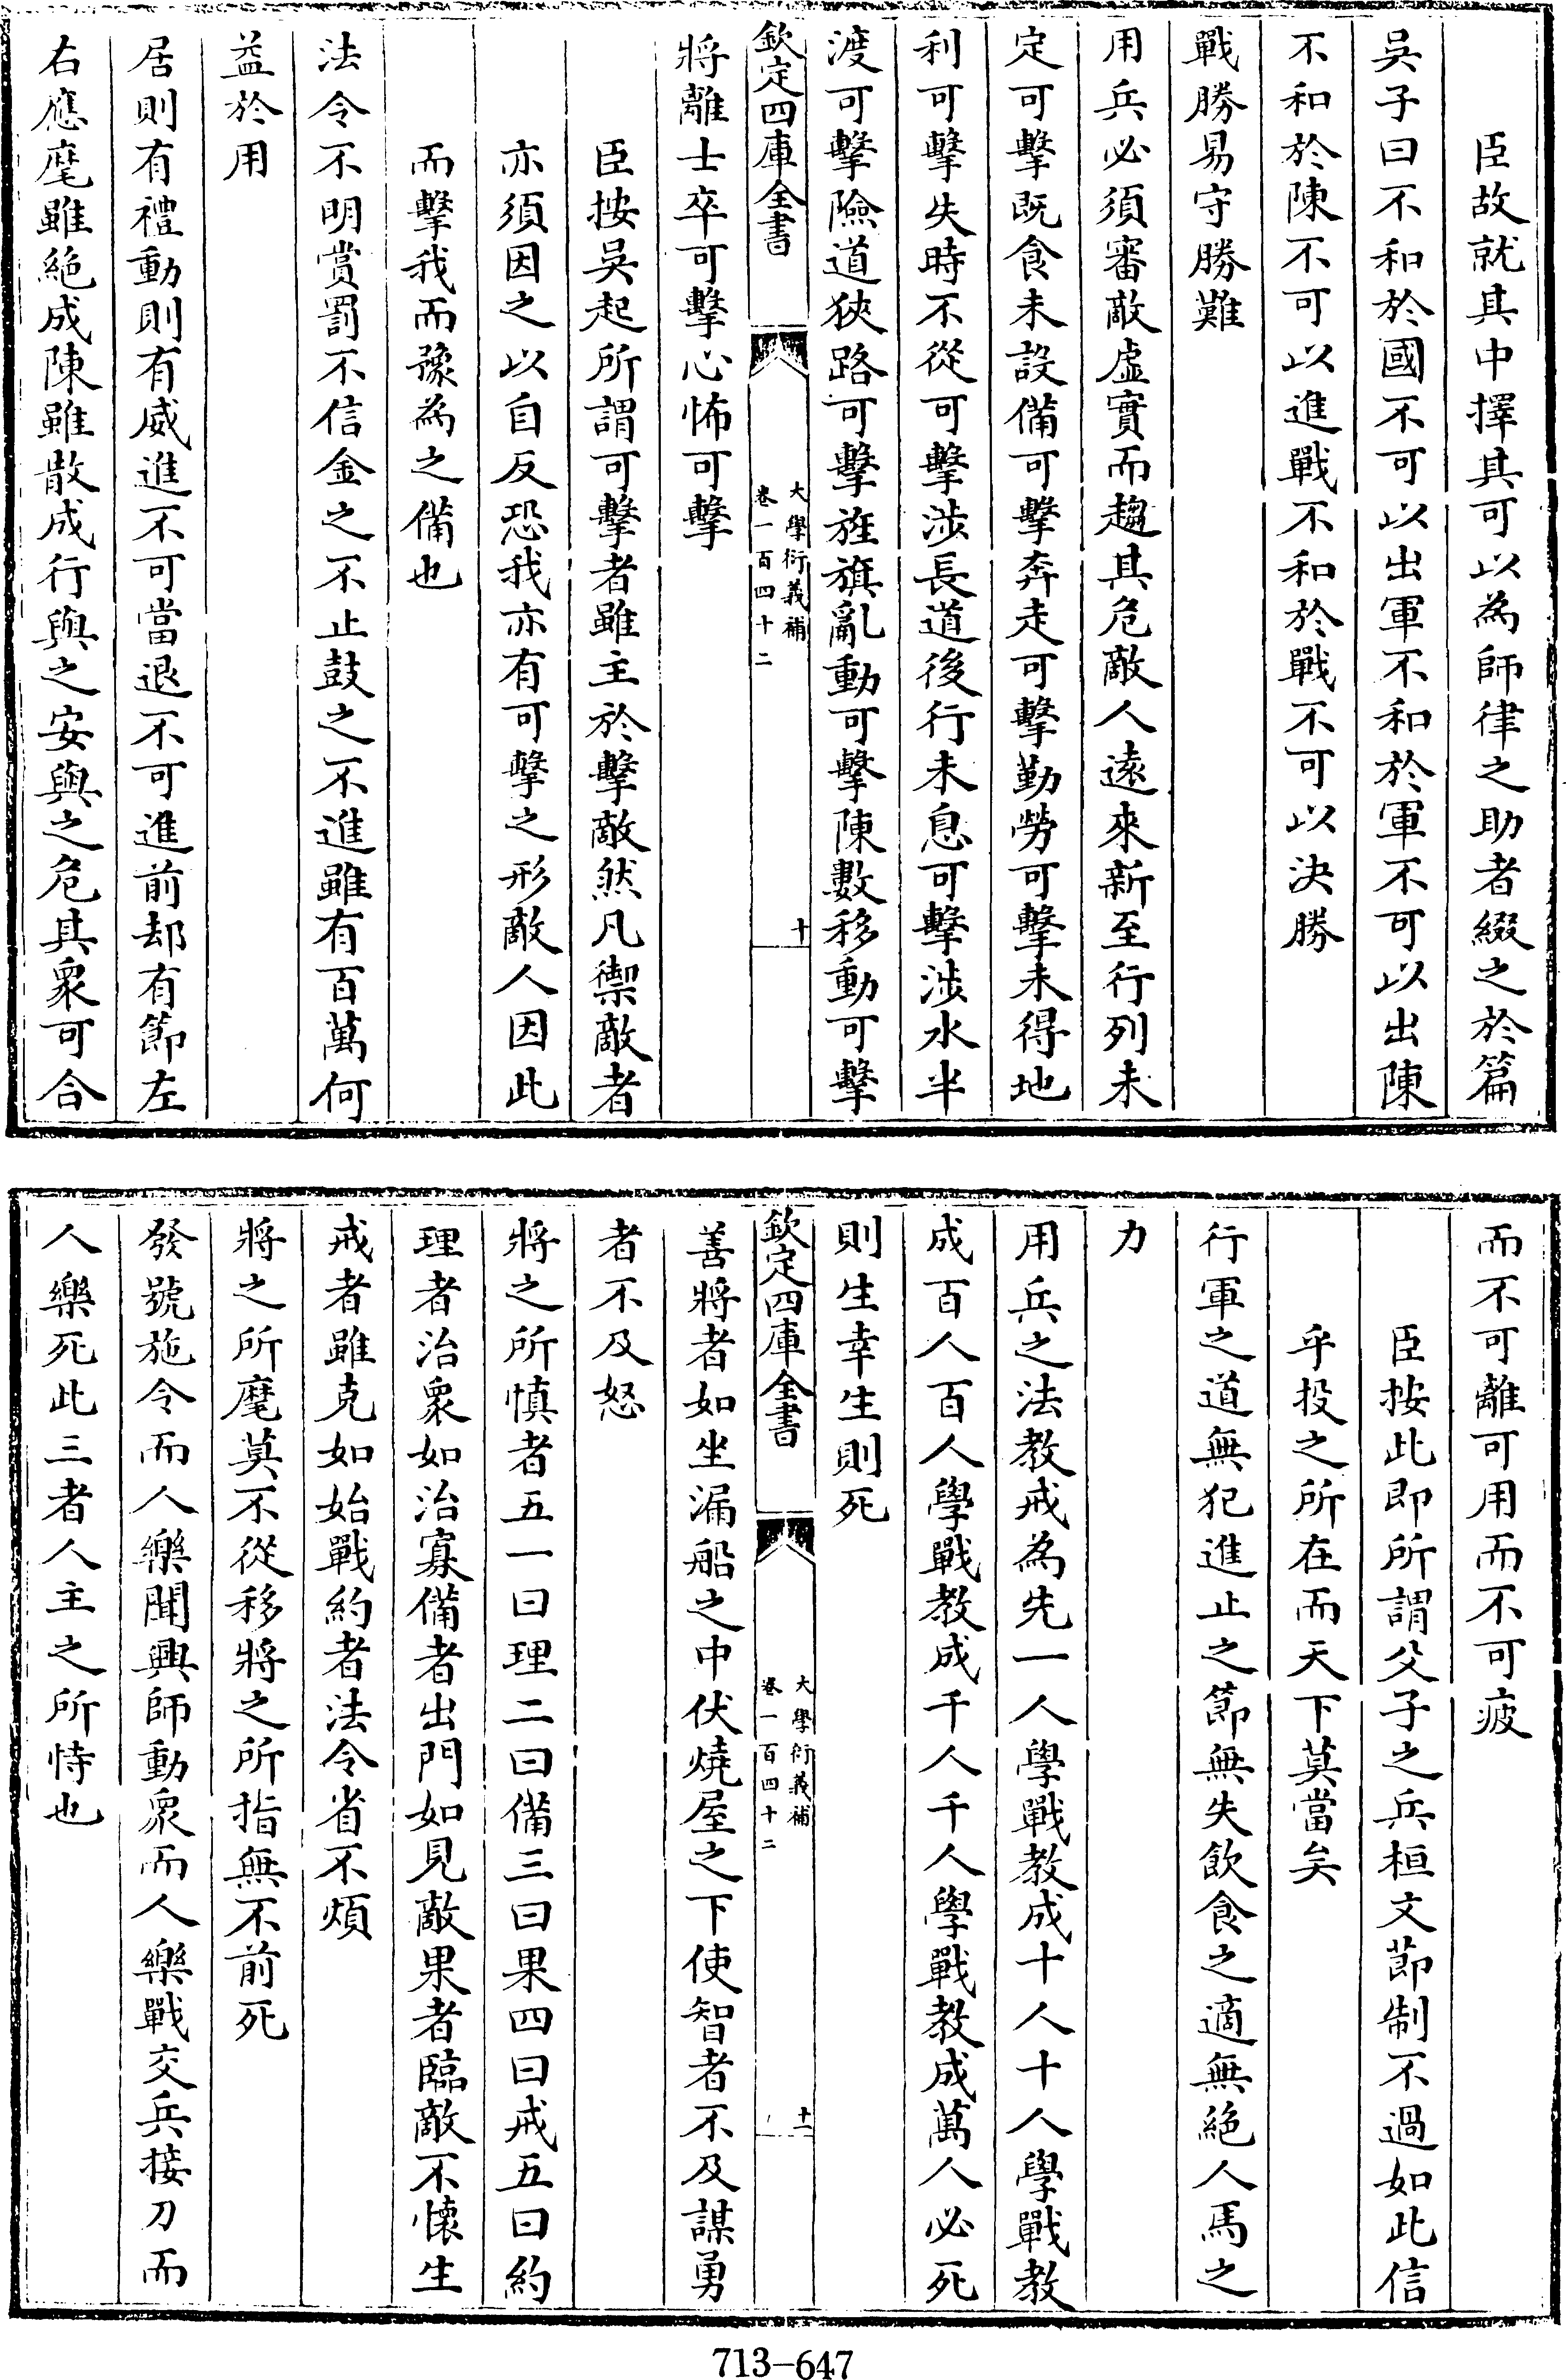 臣故就其中擇其可以為師律之助者綴之於篇
吳子曰不和於國不可以出軍不和於軍不可以出陳
不和於陳不可以進戰不和於戰不可以決勝
戰勝易守勝難
用兵必須審敵虛實而趨其危敵人遠來新至行列未
定可擊既食未設備可擊奔走可擊勤勞可擊未得地
利可擊失時不從可擊涉長道後行未息可擊涉水半
渡可擊險道狹路可擊旌旗亂動可擊陳數移動可擊
欽定四庫全書
大學衍義補
卷一百四十二
十
將離士卒可擊心怖可擊
臣按吳起所謂可擊者雖主於擊敵然凡禦敵者
亦須因之以自反恐我亦有可擊之形敵人因此
而擊我而豫為之備也
法令不明賞罰不信金之不止鼓之不進雖有百萬何
益於用
居則有禮動則有威進不可當退不可進前却有節左
右應麾雖絕成陳雖散成行與之安與之危其衆可合
而不可離可用而不可疲
臣按此即所謂父子之兵桓文節制不過如此信
乎投之所在而天下莫當矣
行軍之道無犯進止之節無失飲食之適無絕人馬之
力
用兵之法教戒為先一人學戰教成十人十人學戰教
成百人百人學戰教成千人千人學戰教成萬人必死
則生幸生則死
欽定四庫全書
大學衍義補
卷一百四十二
十一
善將者如坐漏船之中伏燒屋之下使智者不及謀勇
者不及怒
將之所慎者五一曰理二曰備三曰果四曰戒五曰約
理者治衆如治寡備者出門如見敵果者臨敵不懷生
戒者雖克如始戰約者法令省不煩
將之所麾莫不從移將之所指無不前死
發號施令而人樂聞興師動衆而人樂戰交兵接刀而
人樂死此三者人主之所恃也
713-647